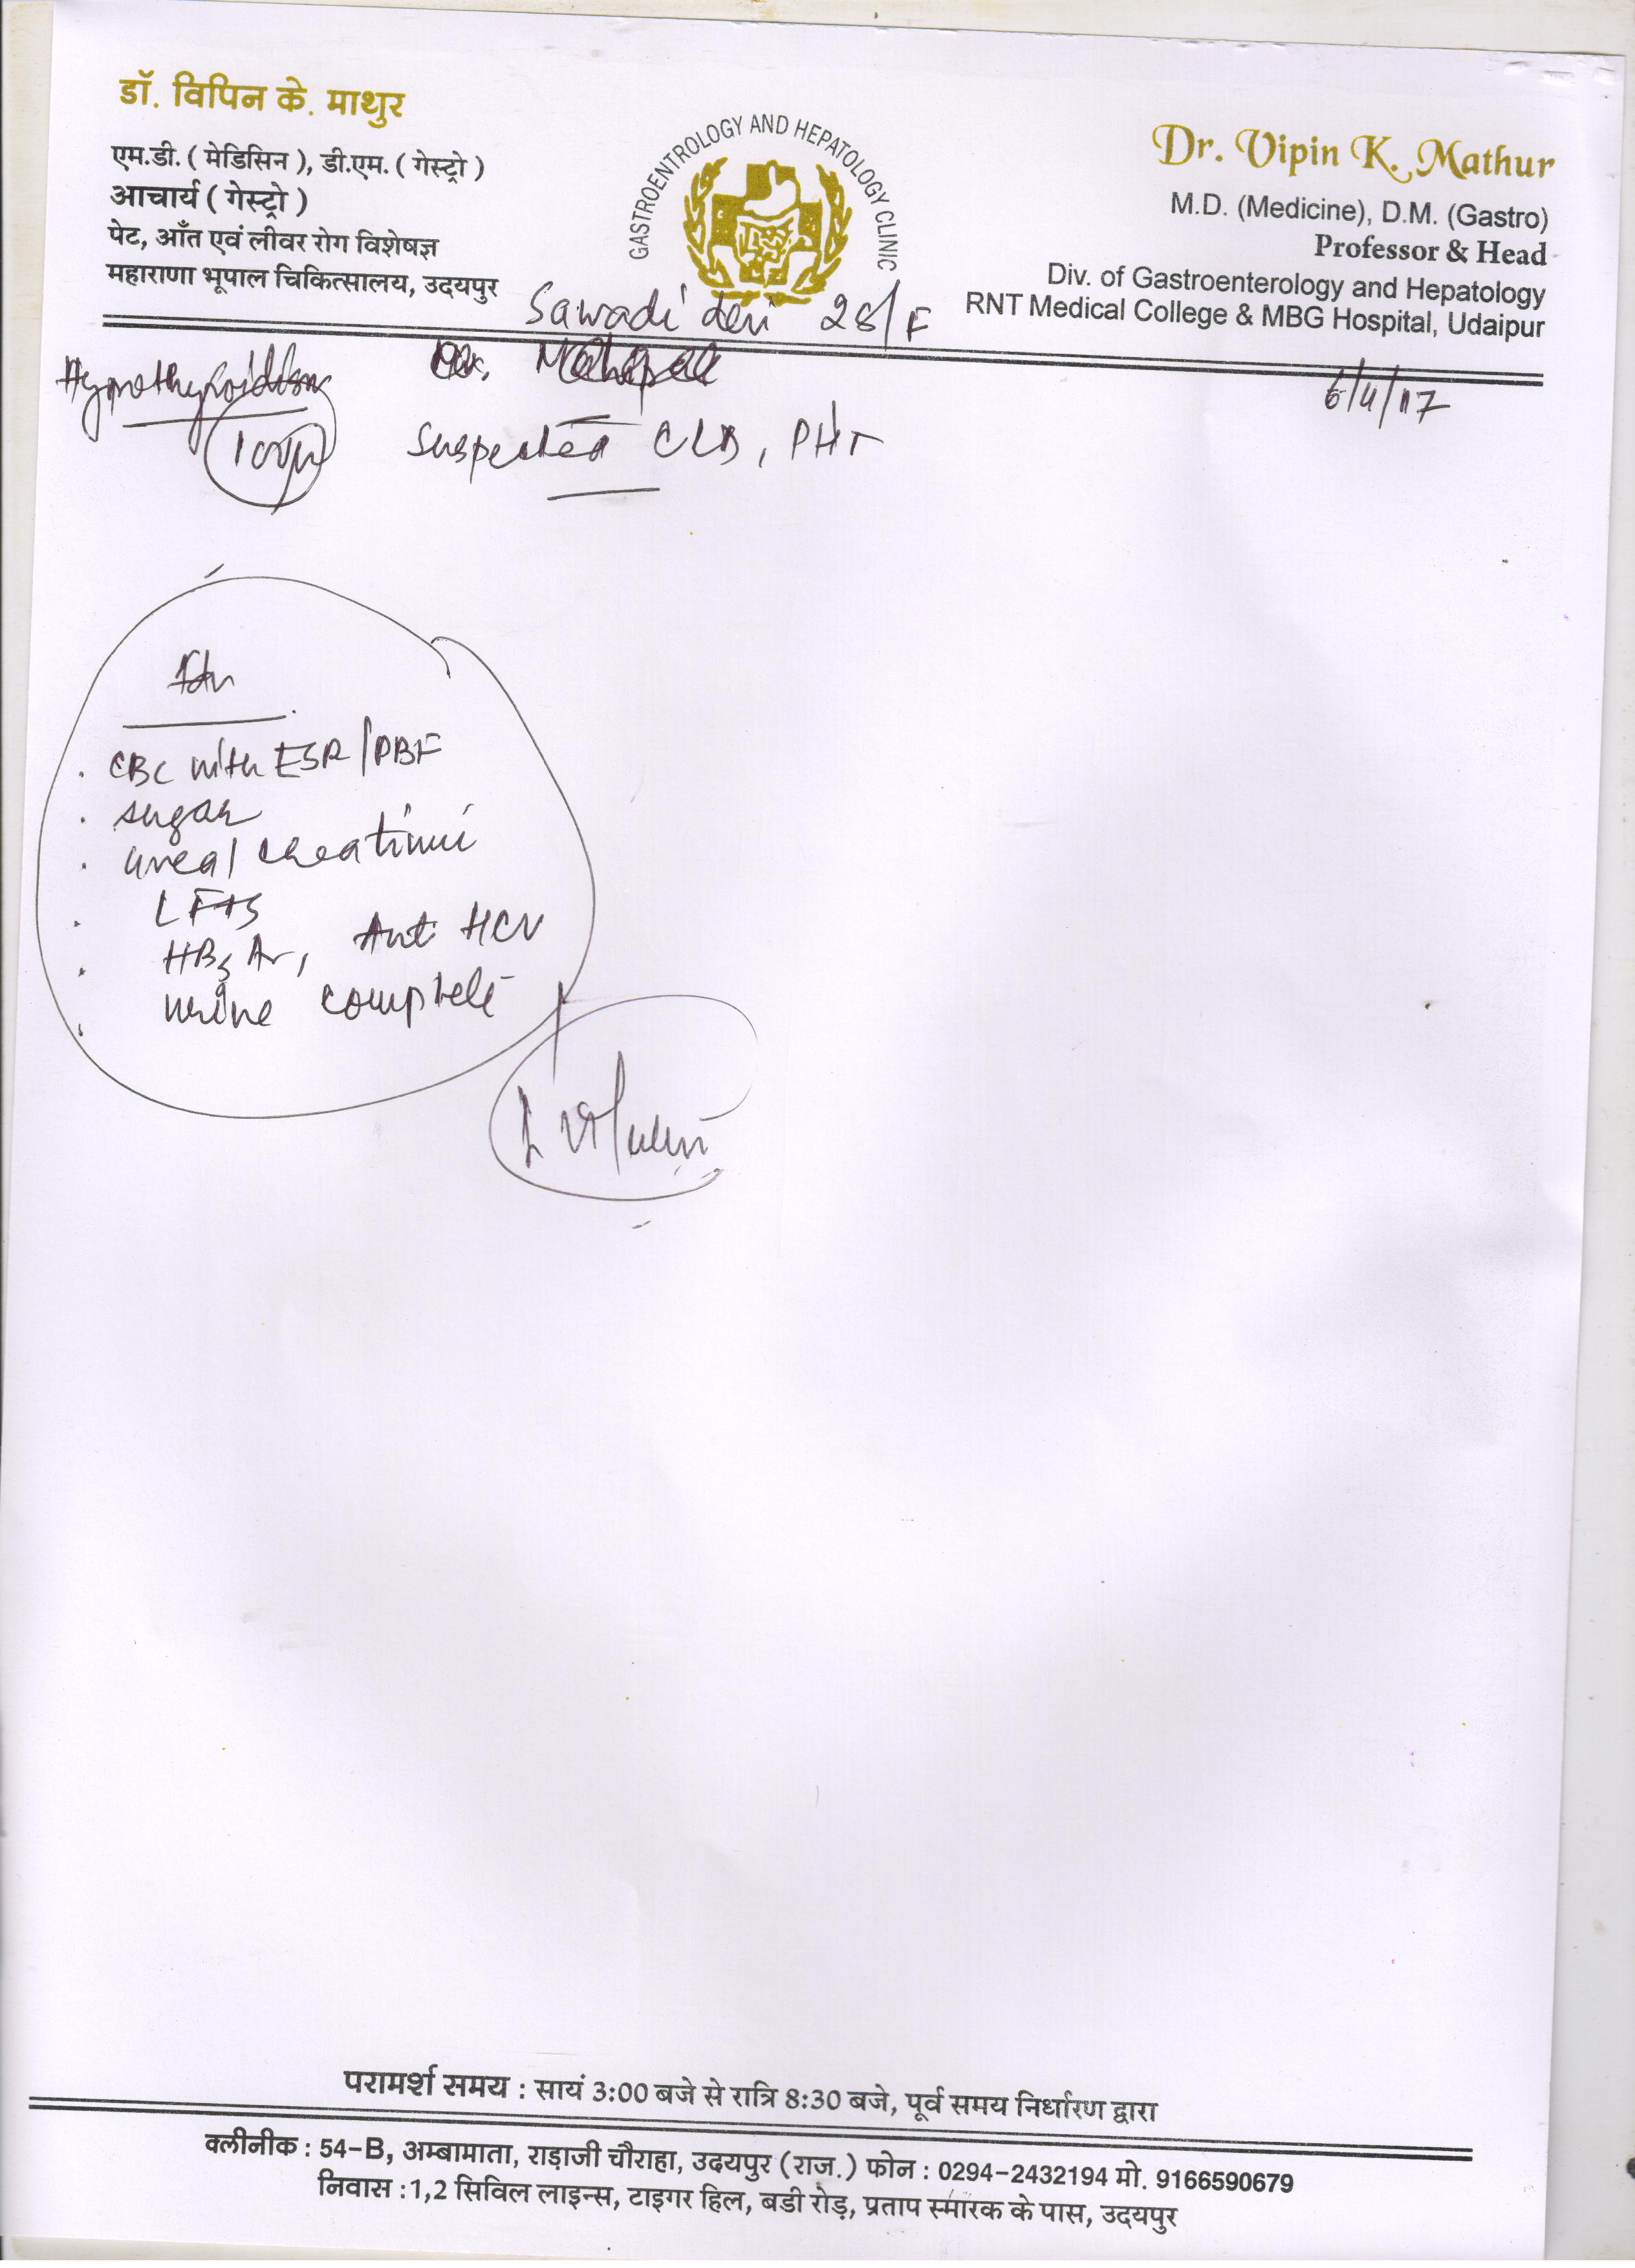 डॉ. विपिन के. माथुर
एम.डी. ( मेडिसिन ), डी.एम. ( गेस्ट्रो )
आचार्य ( गेस्ट्रो )
पेट, आँत एवं लीवर रोग विशेषज्ञ
महाराणा भूपाल चिकित्सालय, उदयपुर
GASTROENTROLOGY AND HEPATOLOGY CLINIC
Dr. Vipin K. Mathur
M.D. (Medicine), D.M. (Gastro)
Professor & Head
Div. of Gastroenterology and Hepatology
RNT Medical College & MBG Hospital, Udaipur
Sawadi devi 28/F
Hypothyroidism
6/4/17
100μ
Suspected CLD, PHT
. CBC with ESR/PBF
. sugar
. urea/creatinine
. LFTS
. HBsAg, Anti HCV
. urine complete
परामर्श समय : सायं 3:00 बजे से रात्रि 8:30 बजे, पूर्व समय निर्धारण द्वारा
क्लीनीक : 54-B, अम्बामाता, राड़ाजी चौराहा, उदयपुर ( राज. ) फोन : 0294-2432194 मो. 9166590679
निवास :1,2 सिविल लाइन्स, टाइगर हिल, बडी रोड़, प्रताप स्मारक के पास, उदयपुर